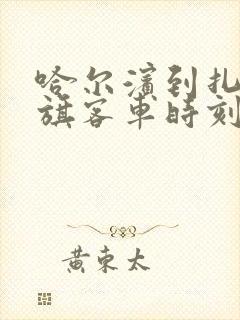 哈尔滨到扎
旗客车时刻
黄东太